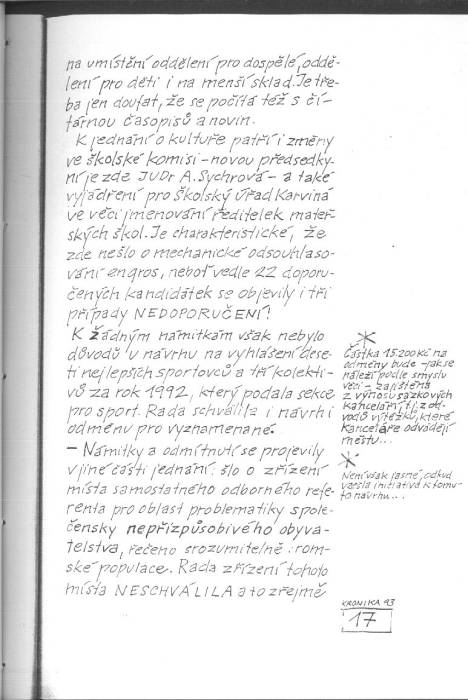 na umístění oddělení pro dospělé, oddě-
lení pro děti i na menší sklad. Je tře-
ba jen doufat, že se počítá též s čí-
tárnou časopisů a novin.
K jednání o kultuře patří i změny
ve školské komisi – novou předsedky-
ní je zde JUDr A. Sychrová – a také
vyjádření pro Školský úřad Karviná
ve věci jmenování ředitelek mateř-
ských škol. Je charakteristické, že
zde nešlo o mechanické odsouhlaso-
vání en gros, neboť vedle 22 doporu-
čených kandidátek se objevily i tři
případy NEDOPORUČENÍ!
K žádným námitkám však nebylo
důvodů u návrhu na vyhlášení dese-
ti nejlepších sportovců a tří kolekti-
vů za rok 1992, který podala sekce
pro sport. Rada schválila i návrh i
odměnu pro vyznamenané.
– Námitky a odmítnutí se projevily
v jiné části jednání: šlo o zřízení
místa samostatného odborného refe-
renta pro oblast problematiky spole-
čensky nepřizpůsobivého obyva-
telstva, řečeno srozumitelně: rom-
ské populace. Rada zřízení tohoto
místa NESCHVÁLILA a to zřejmě
*
Částka 15.200 Kč na
odměny bude – jak se
náleží podle smyslu
věci – zajištěna
z výnosu sázkových
kanceláří, tj. z od-
vodů výtěžku, které
kanceláře odvádějí
městu...
*
Není však jasné, odkud
vzešla iniciativa k tomu-
to návrhu...
KRONIKA 93
17